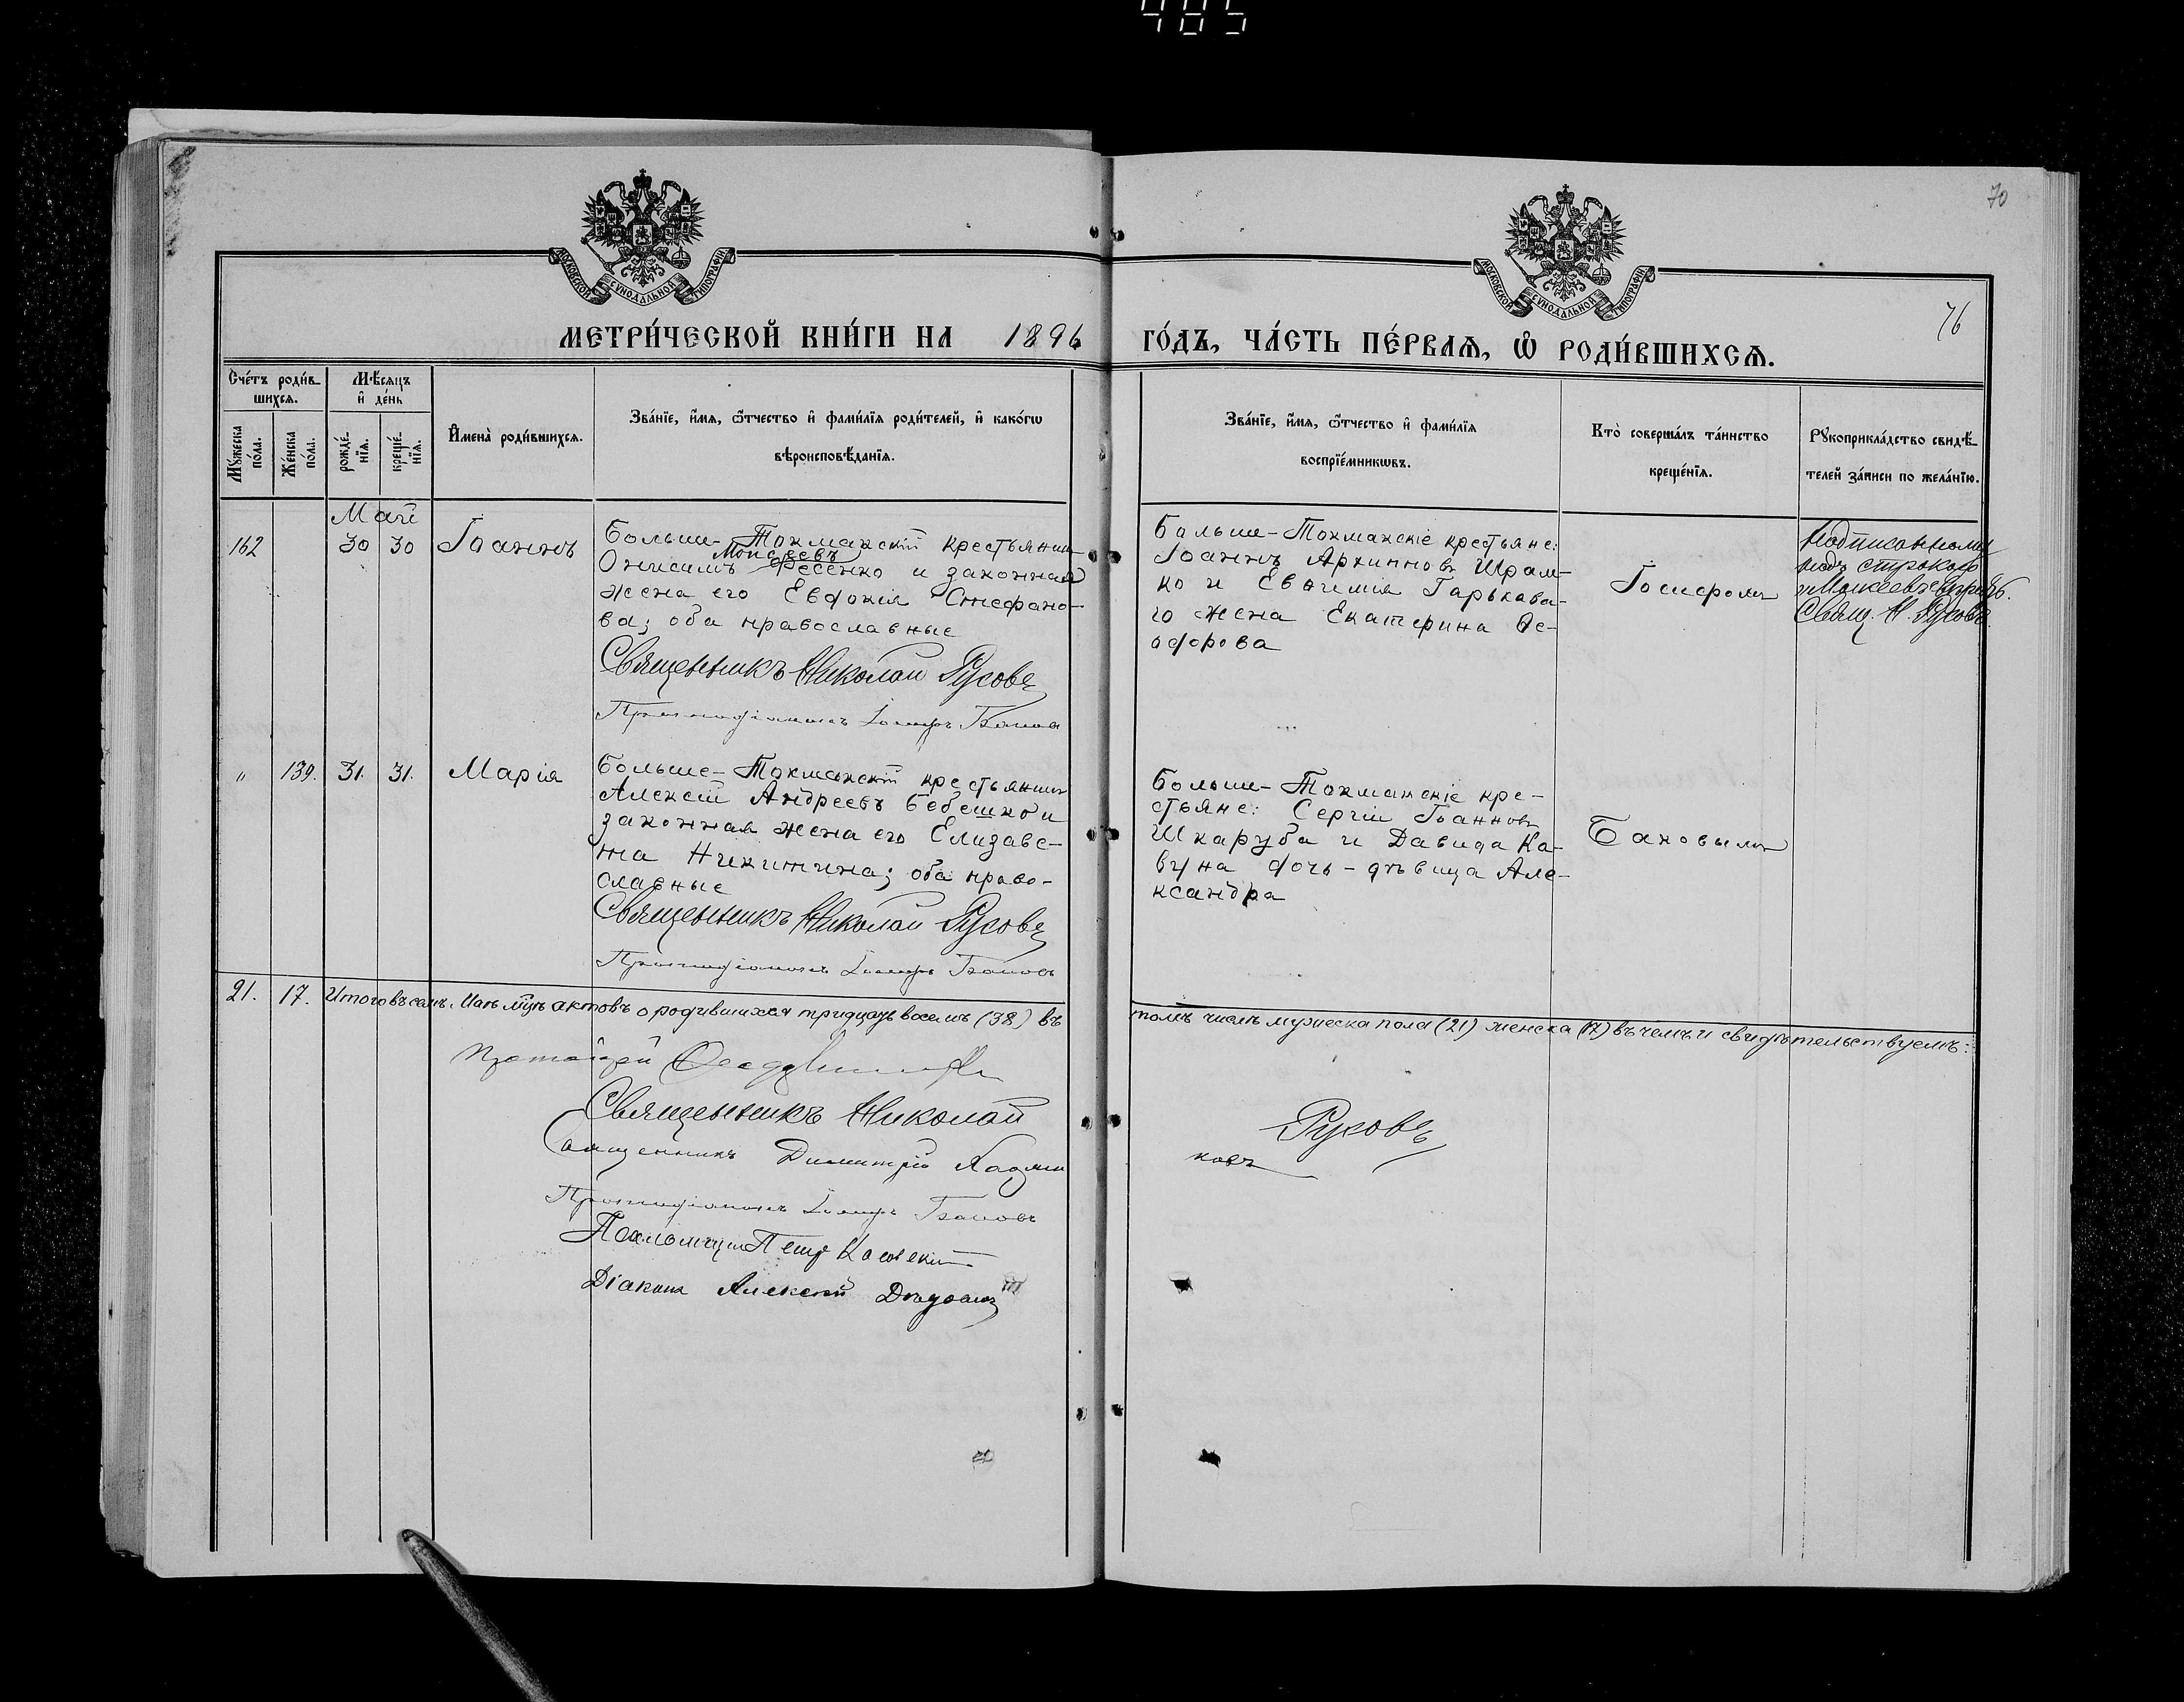 485
70
76
МОСКОВСКОЙ СУНОДАЛЬНОЙ ТИПОГРАФІИ
МОСКОВСКОЙ СУНОДАЛЬНОЙ ТИПОГРАФІИ
МЕТРИ́ЧЕСКОЙ КНИ́ГИ НА 1896 ГО́ДЪ, ЧА́СТЬ ПЕ́РВАѦ, Ѽ РОДИ́ВШИХСѦ.
Сче́тъ роди́в-
шихсѧ.
Мꙋ́жеска
по́ла.
Же́нска
по́ла.
Мѣ́сѧцъ
и де́нь
рожде́-
нїѧ.
креще́-
нїѧ.
И҆мена̀ роди́вшихсѧ.
Зва́нїе, и҆́мѧ, ѻ҆́тчество и҆ фами́лїѧ роди́телей, и҆ како́гѡ
вѣроисповѣ́данїѧ.
Зва́нїе, и҆́мѧ, ѻ҆́тчество и҆ фами́лїѧ
воспрїе́мникѡвъ.
Кто̀ соверша́лъ та́инство
креще́нїѧ.
Рꙋкоприкла́дство свидѣ́-
телей за́писи по жела́нїю.
Май
162 30 30 Іоаннъ
Больше-Токмакскій крестьянин
Моисеевъ
Онисимъ Фесенко и законная
жена его Евдокія Стефано-
ва; оба православные
Священникъ Николай Русовъ
Протодіаконъ Іосифъ Баковъ
Больше-Токмакскіе крестьяне:
Іоаннъ Архиповъ Шрам-
ко и Евѳимія Гарькава-
го жена Екатерина Ѳе-
одорова
Іосифомъ
Надписанному
надъ строкою
"Моисеевъ" вѣрить.
Свящ. Н. Русовъ.
" 139. 31. 31. Марія
Больше-Токмакскій крестьянин
Алексій Андреевъ Бебешко и
законная жена его Елизаве-
та Никитина; оба право-
славные
Священникъ Николай Русовъ
Протодіаконъ Іосифъ Баковъ
Больше-Токмакскіе кре-
стьяне: Сергій Іоанновъ
Шкаруба и Давида Ка-
вуна дочь-дѣвица Але-
ксандра
Баковымъ
21. 17. Итого въ семъ Маѣ м-цѣ актовъ о родившихся тридцать восемь (38) въ
томъ числѣ мужеска пола (21) женска (17) въ чемъ и свидѣтельствуемъ:
Протоіерей
Священникъ Николай Русовъ
Священникъ Димитрій
ковъ
Протодіаконъ Іосифъ Баковъ
Псаломщикъ Петръ
Діаконъ Алексій